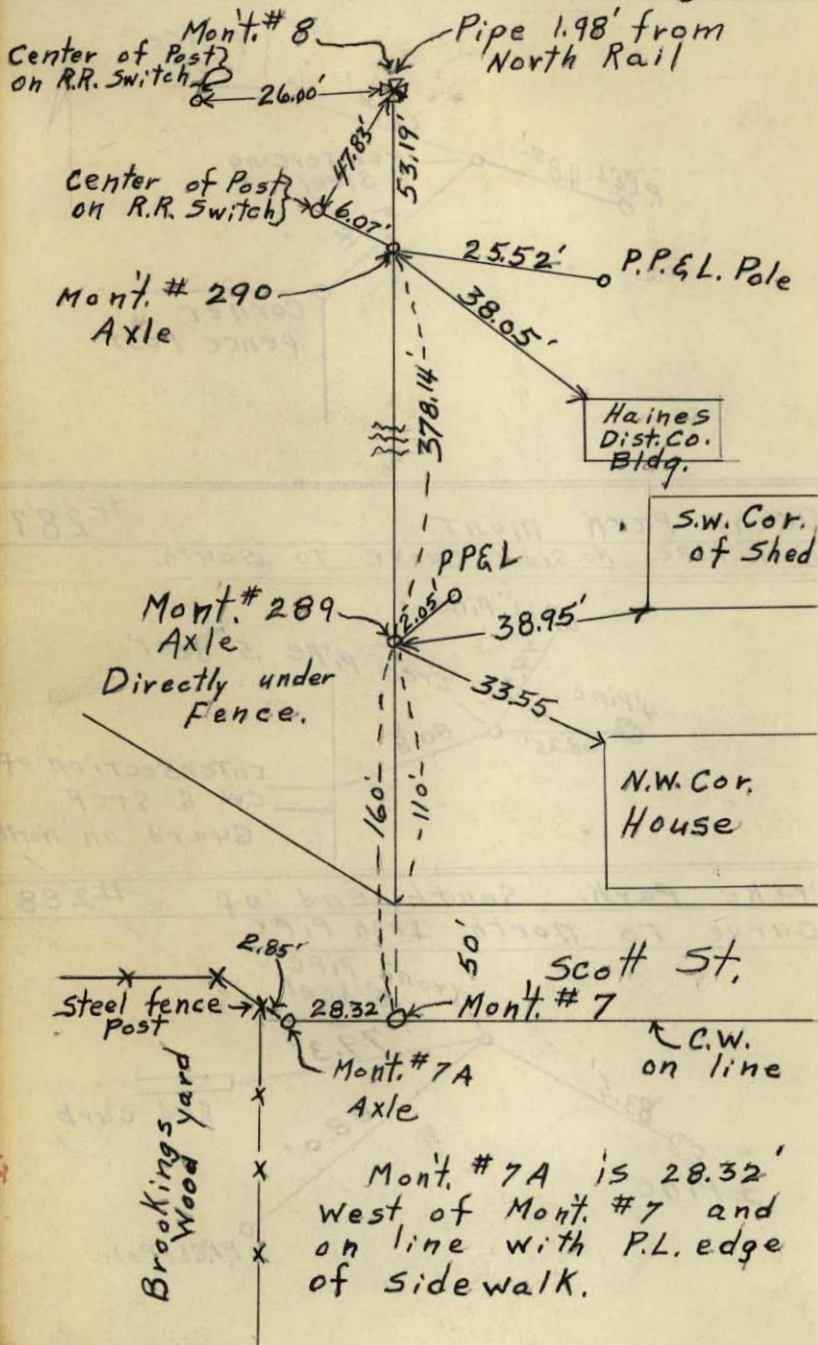 Mon't. # 8
Pipe 1.98' from
North Rail
Center of Post
on R.R. Switch
26.00'
47.83'
53.19'
Center of Post
on R.R. Switch
6.07'
25.52'
P.P.& L. Pole
Mon't. # 290
Axle
38.05'
378.14'
Haines
Dist. Co.
Bldg.
S.W. Cor.
of Shed
PP&L
2.05'
Mont. # 289
Axle
Directly under
Fence.
38.95'
33.55
160'
110'
N.W. Cor.
House
50'
Scott St.
2.85'
Steel fence
Post
28.32'
Mon't. # 7
C.W.
on line
Mon't. # 7A
Axle
Brookings
Wood yard
Mon't. # 7A is 28.32'
West of Mon't. # 7 and
on line with P.L. edge
of sidewalk.
#287
#288